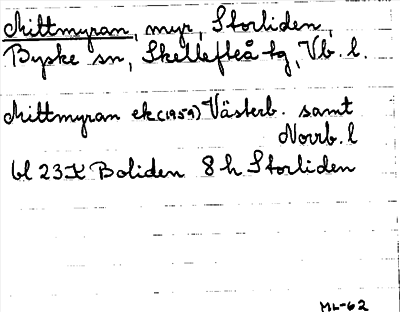 Mittmyran, myr, Storliden,
Byske sn, Skellefteå tg, Vb. l.
Mittmyran ek (1959) Västerb. samt
Norrb. l
bl 23 K Boliden 8 h Storliden
ML-62